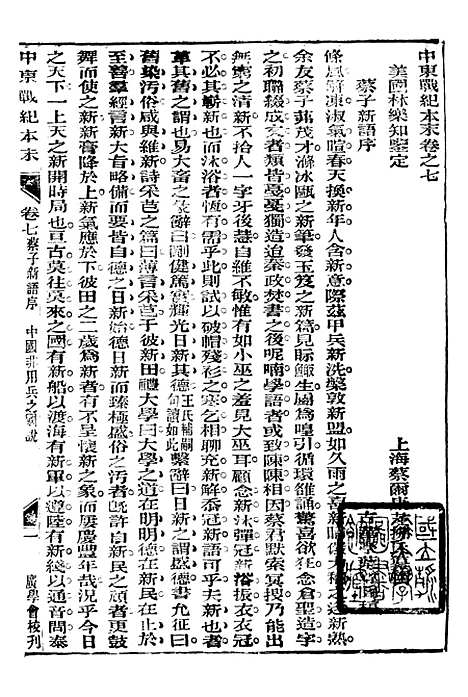 中東戰紀本末卷之七
美國林樂知鑒定
上海蔡爾康
蔡子新語序
條風解凍淑氣暄春天換新年人含新意際茲甲兵新洗槃敦新盟如久雨之喜新晴
余友蔡子茀茂才滌冰甌之新筆發玉笈之新篇見眎鯫生囑為嚆引循環雒誦驚喜欲狂念倉皇造字
之初聯綴成文者類皆戛戛獨造追秦政焚書之後呢喃學語者或致陳陳相因蔡君默索冥搜乃能出
無窮之清新不拾人一字牙後慧自維不敏惟有如小巫之羞見大巫耳顧念新沐彈冠新浴振衣衣冠
不必其嶄新也而沐浴者恆有同乎此則試以破帽殘衫之寒乞相聊充新解柰冠新語可乎夫新也者
革其舊之謂也易大畜彖辭曰剛健篤實輝光日新其德王氏輔嗣句讀如此繫辭曰日新之謂盛德書允征曰
舊染汙俗咸與維新詩采芑之篇曰薄言采芑于彼新田禮大學曰大學之道在明明德在新民在止於
至善羣經言新大旨略備而要皆自德之日新始德日新而臻極盛俗之汚者旣許自新民之新者更鼓
舞而使之新新膏降於上新氣應於下彼田之二歲為新者有不呈懷新之象而屢慶豐年哉況乎今日
之天下一上天之新開時局也亘古莫往莫來之國有新船以渡海有新車以遵陸有新綫以通音問泰
中東戰紀本末
卷七 蔡子新語序 中國非用兵之國說
一
廣學會校刊